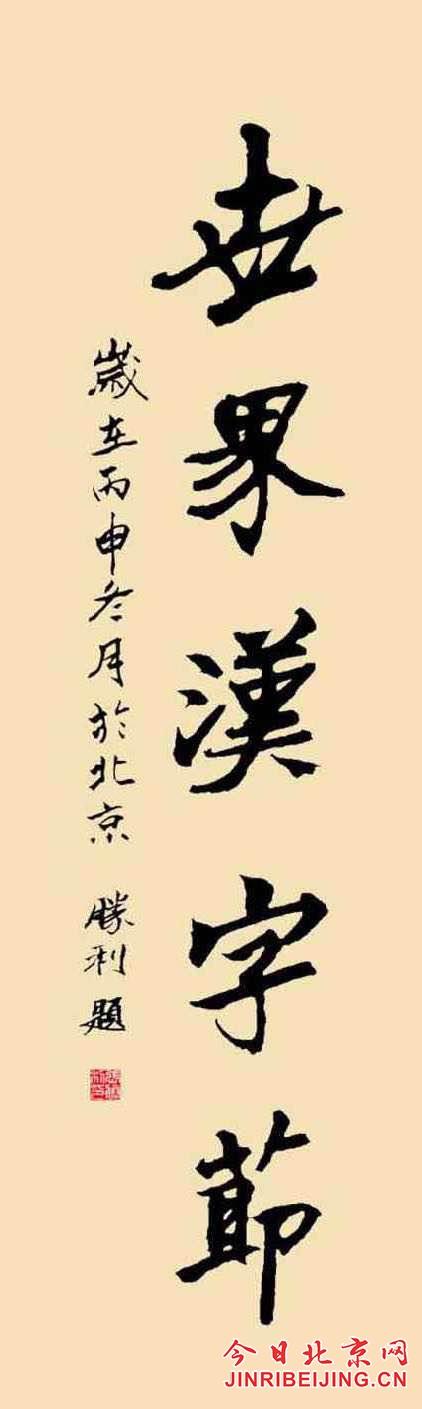 世界漢字節
歲在丙申冬月於北京 勝利題
今日北京网
JINRIBEIJING.CN